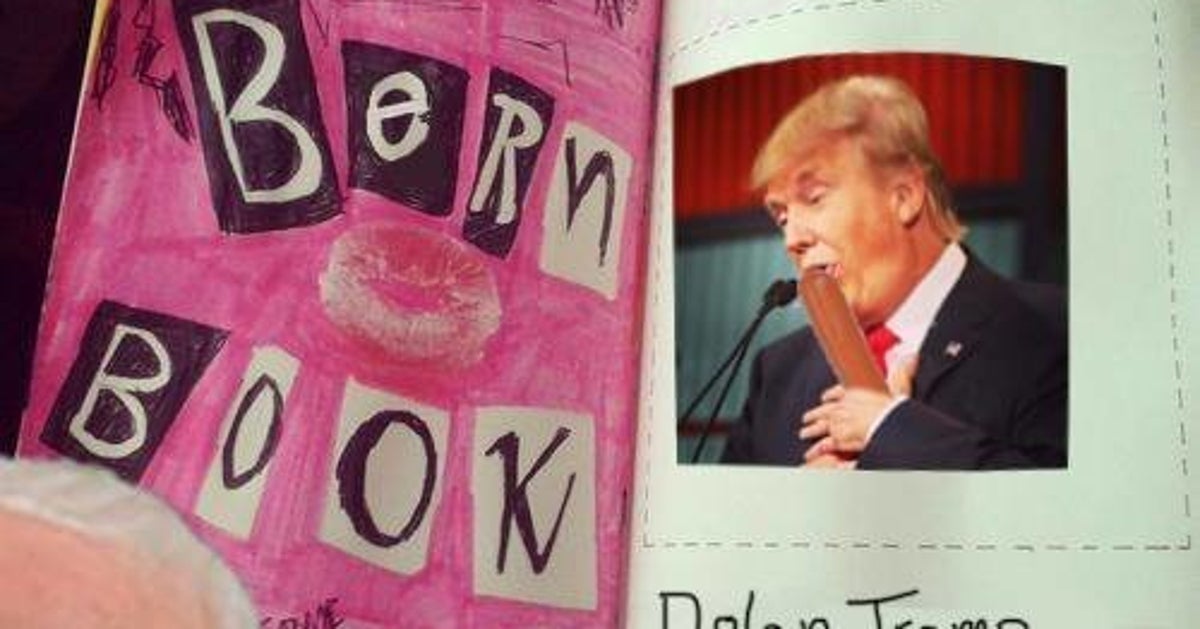 Bern
BOOK
Dolan Tramp